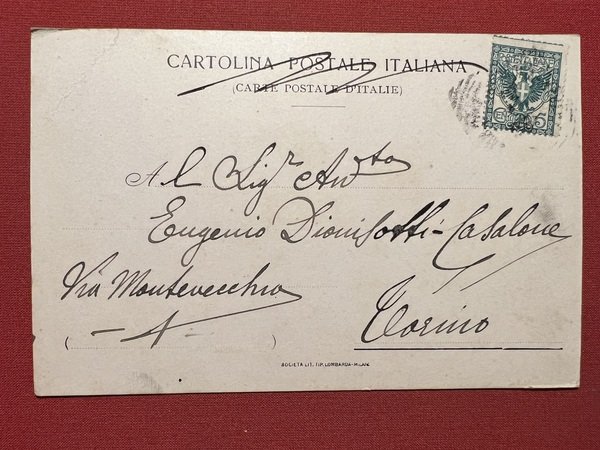 CARTOLINA POSTALE ITALIANA
(CARTE POSTALE D'ITALIE)
5
Al Sigr Avto
Eugenio Dionisotti-Casalone
Via Montevecchio
Torino
( )
SOCIETÀ LIT. TIP. LOMBARDA-MILAN